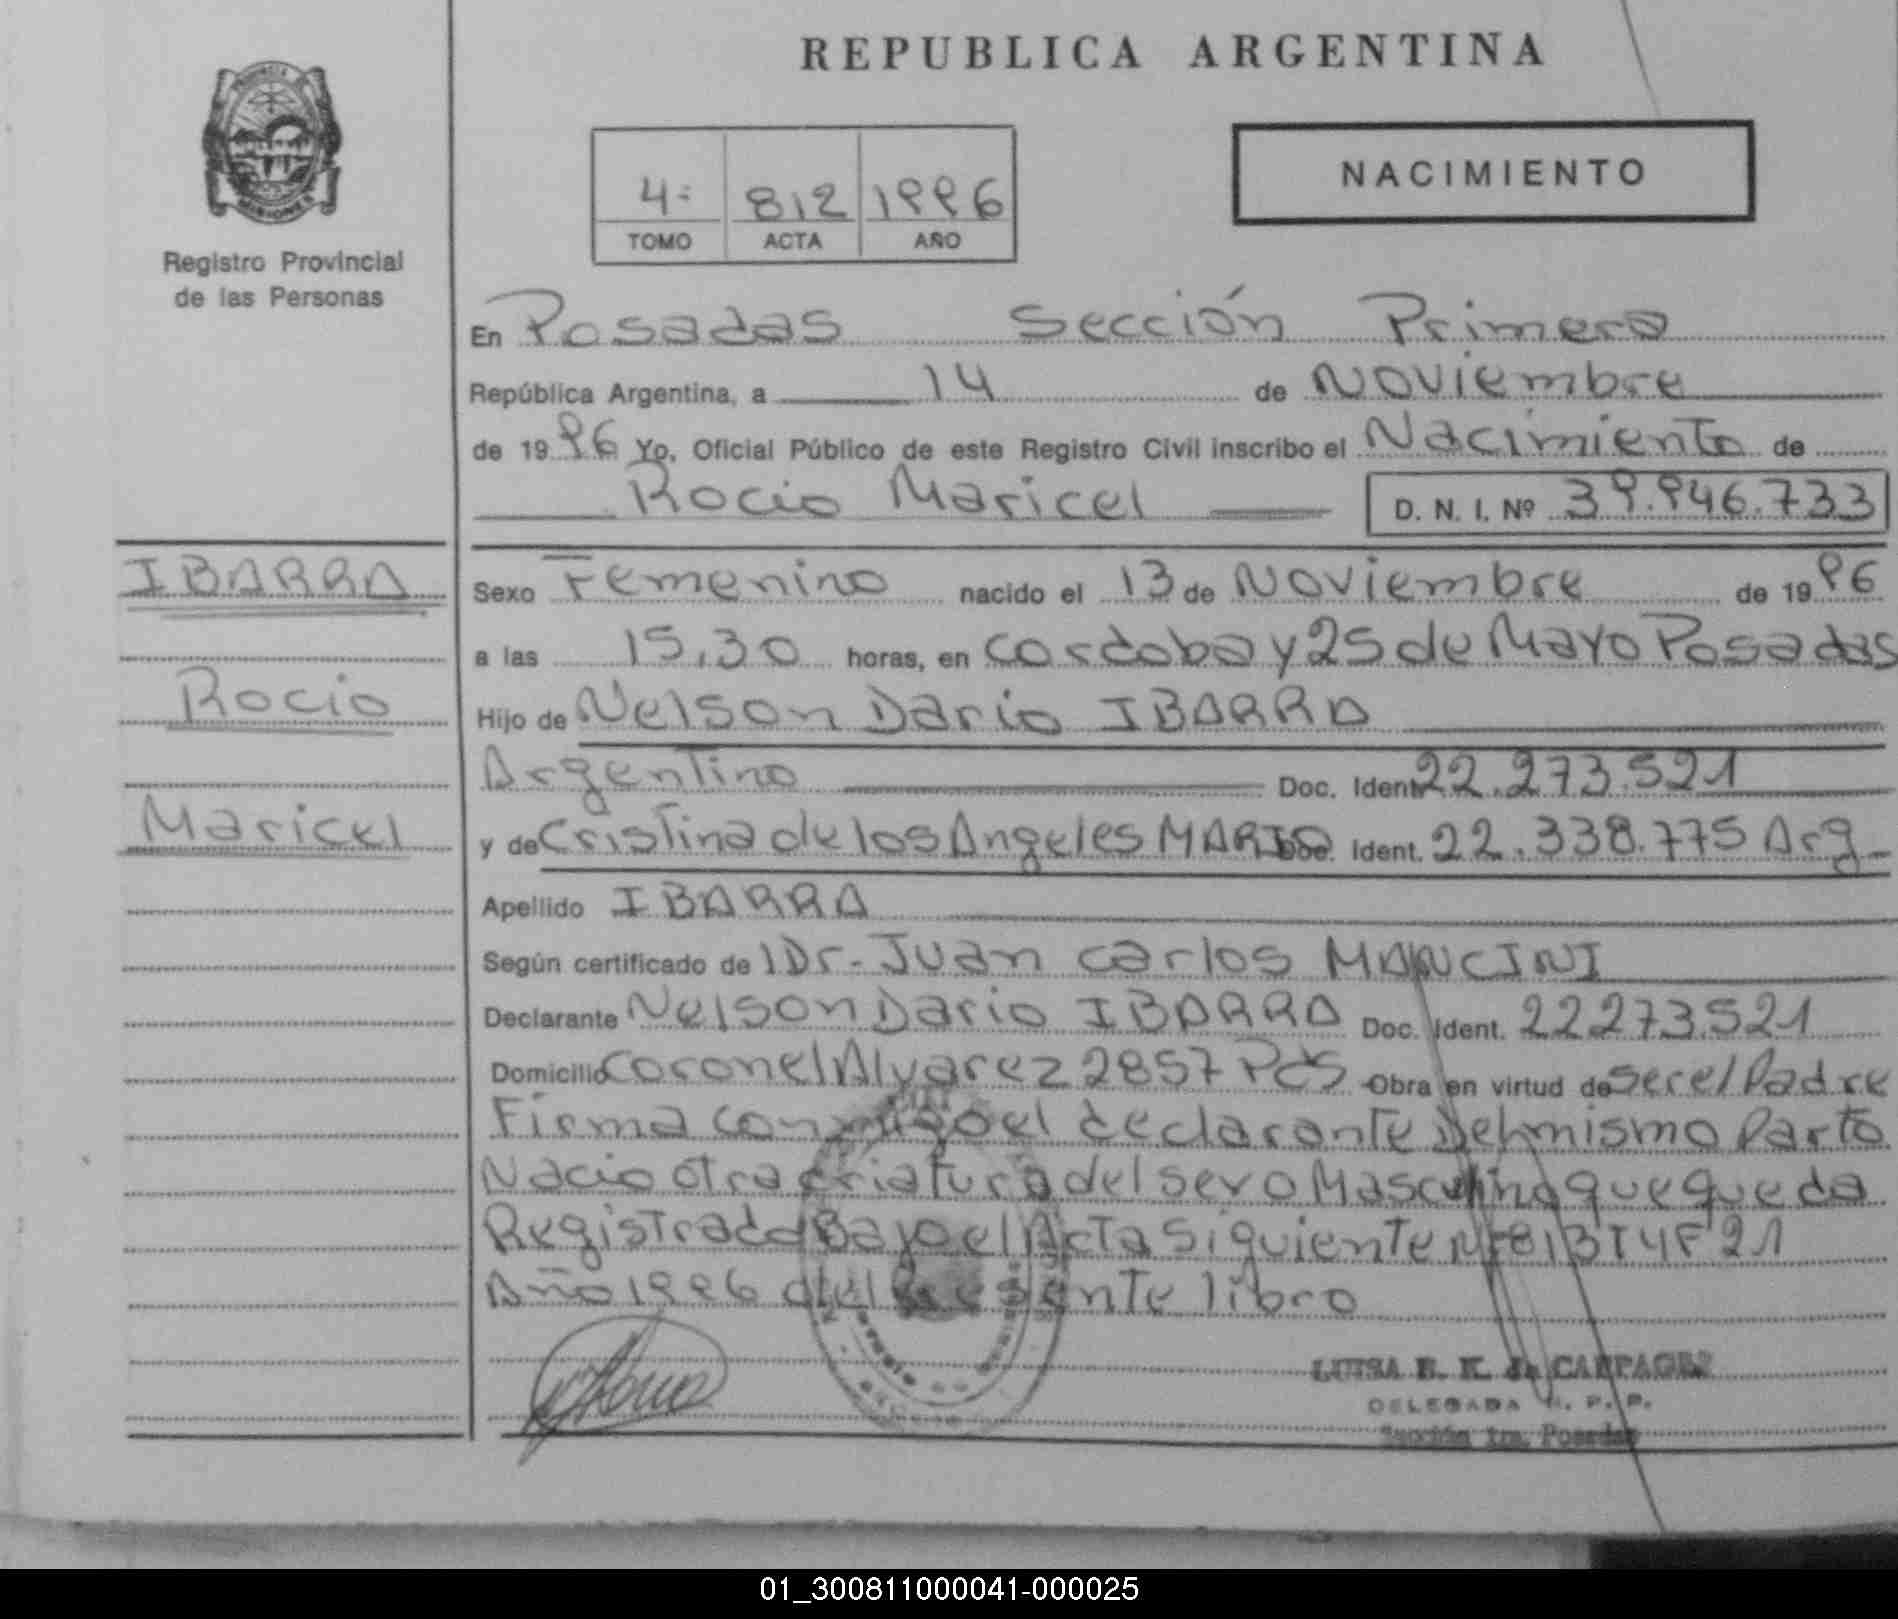 REPUBLICA ARGENTINA
PROVINCIA
MISIONES
Registro Provincial
de las Personas
NACIMIENTO
4: 812 1996
TOMO ACTA AÑO
En Posadas Sección Primera
República Argentina, a 14 de Noviembre
de 1996 Yo, Oficial Público de este Registro Civil inscribo el Nacimiento de
Rocio Maricel D. N. I. Nº 39.946.733
IBARRA
Rocio
Maricel
Sexo Femenino nacido el 13 de Noviembre de 1996
a las 15,30 horas, en Cordoba y 25 de Mayo Posadas
Hijo de Nelson Dario IBARRA
Argentino Doc. Ident. 22.273.521
y de Cristina de los Angeles MARIO Doc. Ident. 22.338.775 Arg_
Apellido IBARRA
Según certificado de l Dr- Juan Carlos MANCINI
Declarante Nelson Dario IBARRA Doc. Ident. 22273.521
Domicilio Coronel Alvarez 2857 Pdas Obra en virtud de ser el Padre
Firma conmigo el declarante Del mismo Parto
Nacio otra criatura del sexo Masculino que queda
Registrado Bajo el Acta Siguiente Nº 813 T4 F 21
Año 1996 del Presente libro
LUISA E. K. de
DELEGADA R. P. P.
Sección 1ra. Posadas
01_300811000041-000025